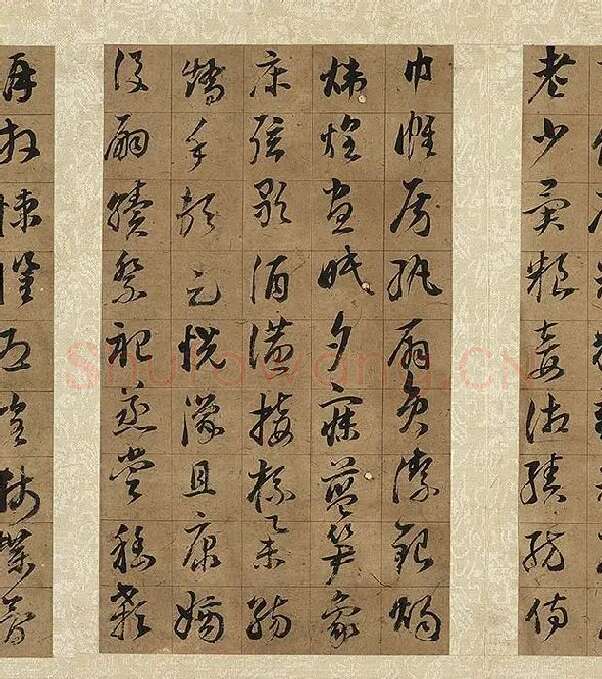 老少異糧妾御績紡侍
巾帷房紈扇員潔銀燭
煒煌晝眠夕寐藍筍象
床弦歌酒讌接杯舉觴
矯手頓足悅豫且康嫡
後嗣續祭祀烝嘗稽顙
再拜悚懼恐惶牋牒簡